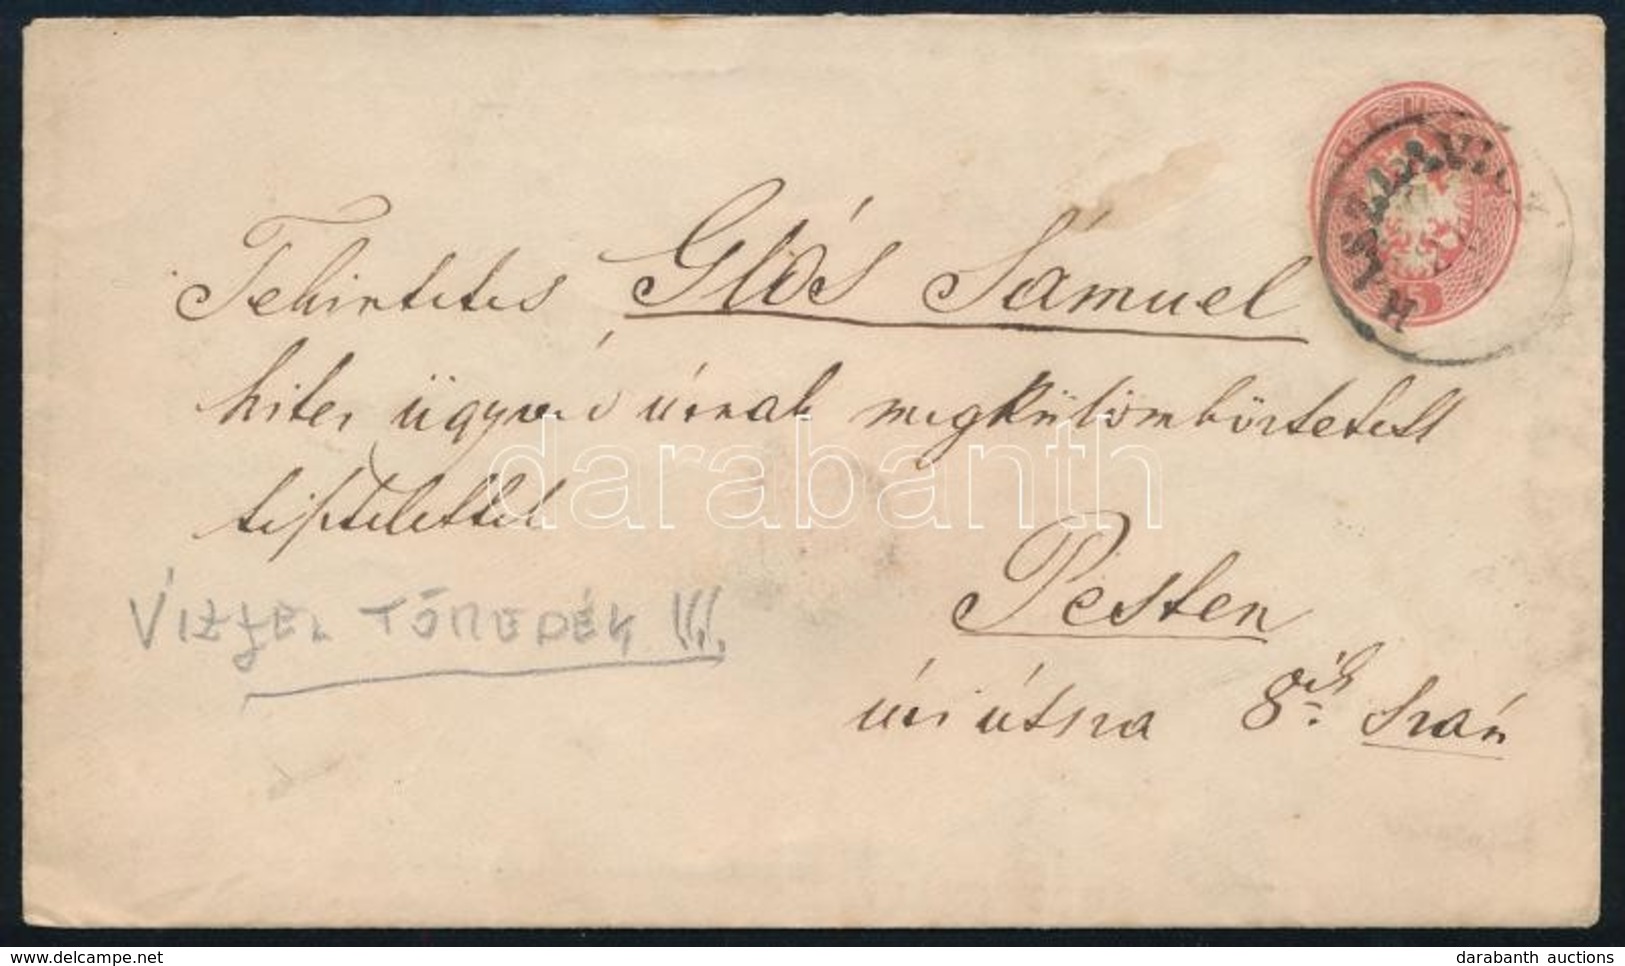 Tekintetes Glós Sámuel
hites ügyvéd úrnak megkülömböztetett
tisztelettel
Pesten
úri útsza 8ik szám
VÍZJEL TÖREDÉK !!!
darabanth
delcampe.net
darabanth auctions